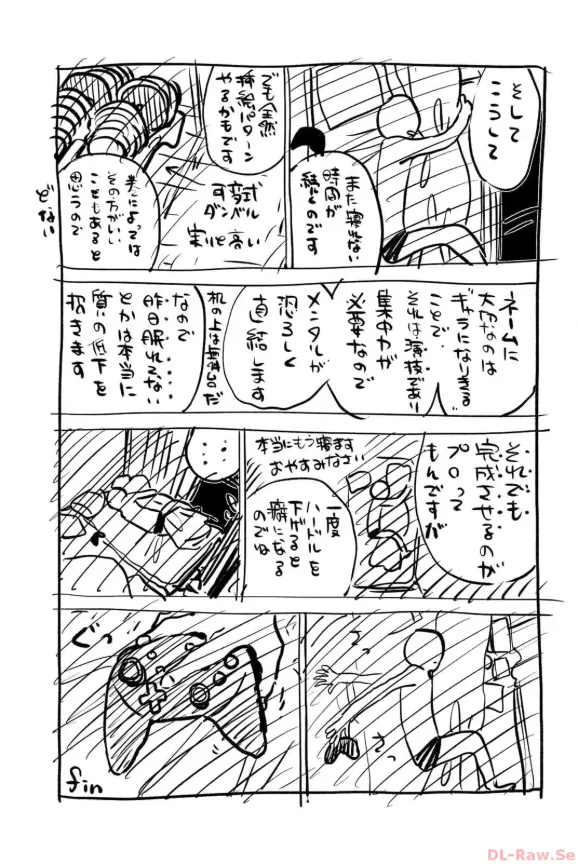 そして
こうして
また寝れない
時間が
続くのです
でも全然
持続パターン
やるかもです
可変式
ダンベル
実に高い
人によっては
その方がいい
こともあると
思うので
ネームに
大切なのは
キャラになりきる
ことで
それは演技であり
集中力が
必要なので
メンタルが
恐ろしく
直結します
机の上は無料品だ
なので
昨日眠れてない
とかは本当に
質の低下を
招きます
それでも
完成させるのが
プロって
もんですが
本当にもう寝ます
おやすみなさい
一度
ハードルを
下げると
癖になる
のでね
...
さっ
さっ
ぐっ
fin
DL-Raw.Se